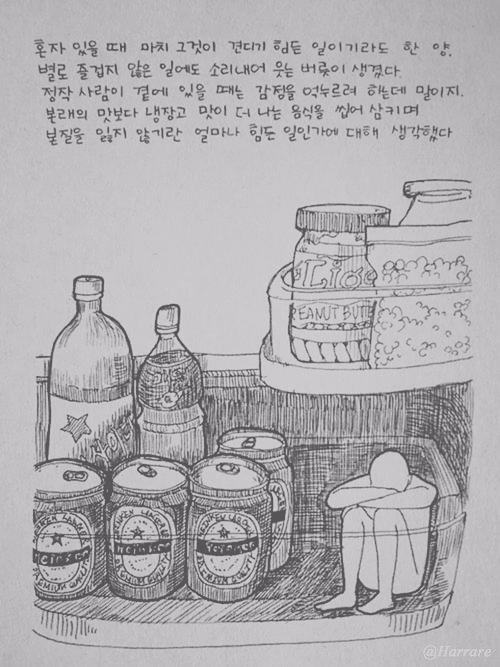 혼자 있을 때 마치 그것이 견디기 힘든 일이기라도 한 양.
별로 즐겁지 않은 일에도 소리내어 웃는 버릇이 생겼다.
정작 사람이 곁에 있을 때는 감정을 억누르려 하는데 말이지.
본래의 맛보다 냉장고 맛이 더 나는 음식을 씹어 삼키며
본질을 잃지 않기란 얼마나 힘든 일인가에 대해 생각했다
PEANUT BUTT
@Harrare